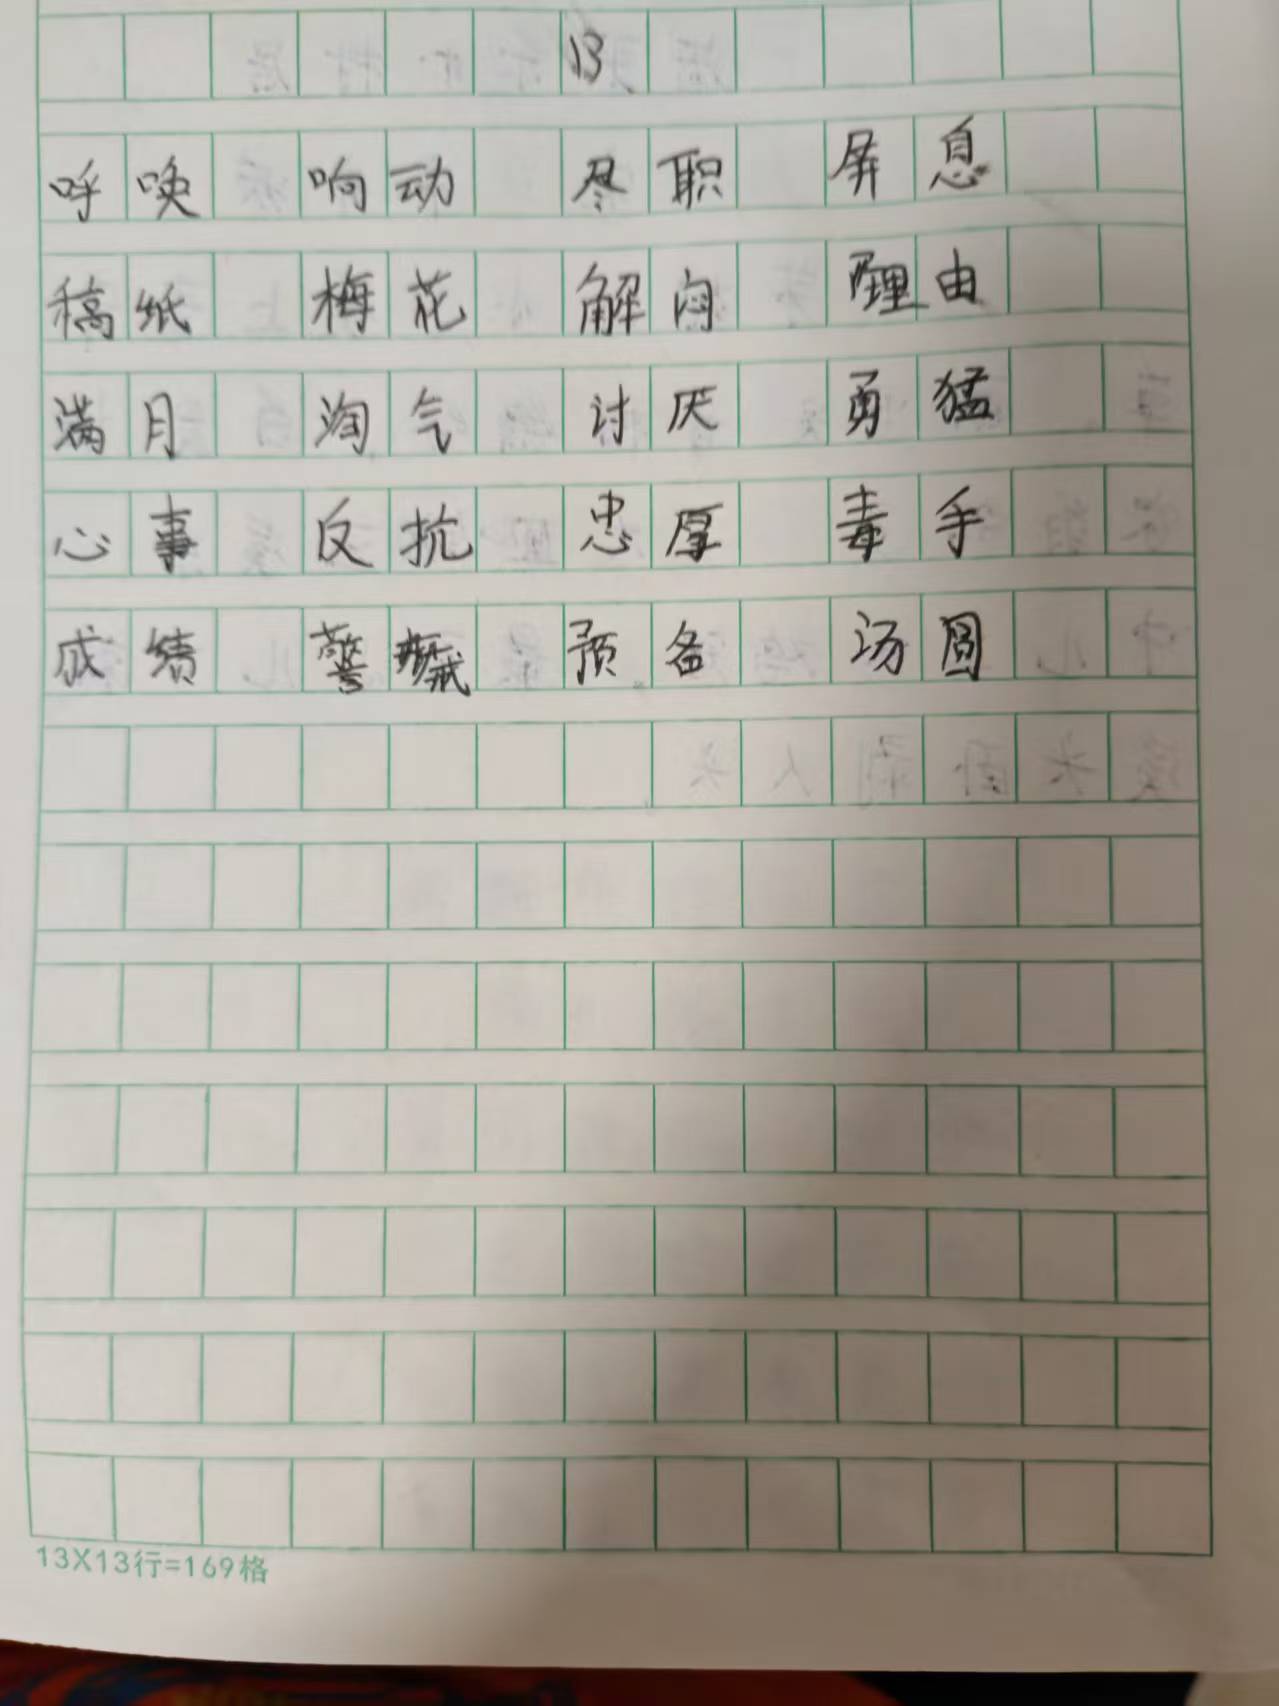 13
呼唤 响动 尽职 屏息
稿纸 梅花 解闷 理由
满月 淘气 讨厌 勇猛
心事 反抗 忠厚 毒手
成绩 警戒 预备 汤圆
13X13行=169格